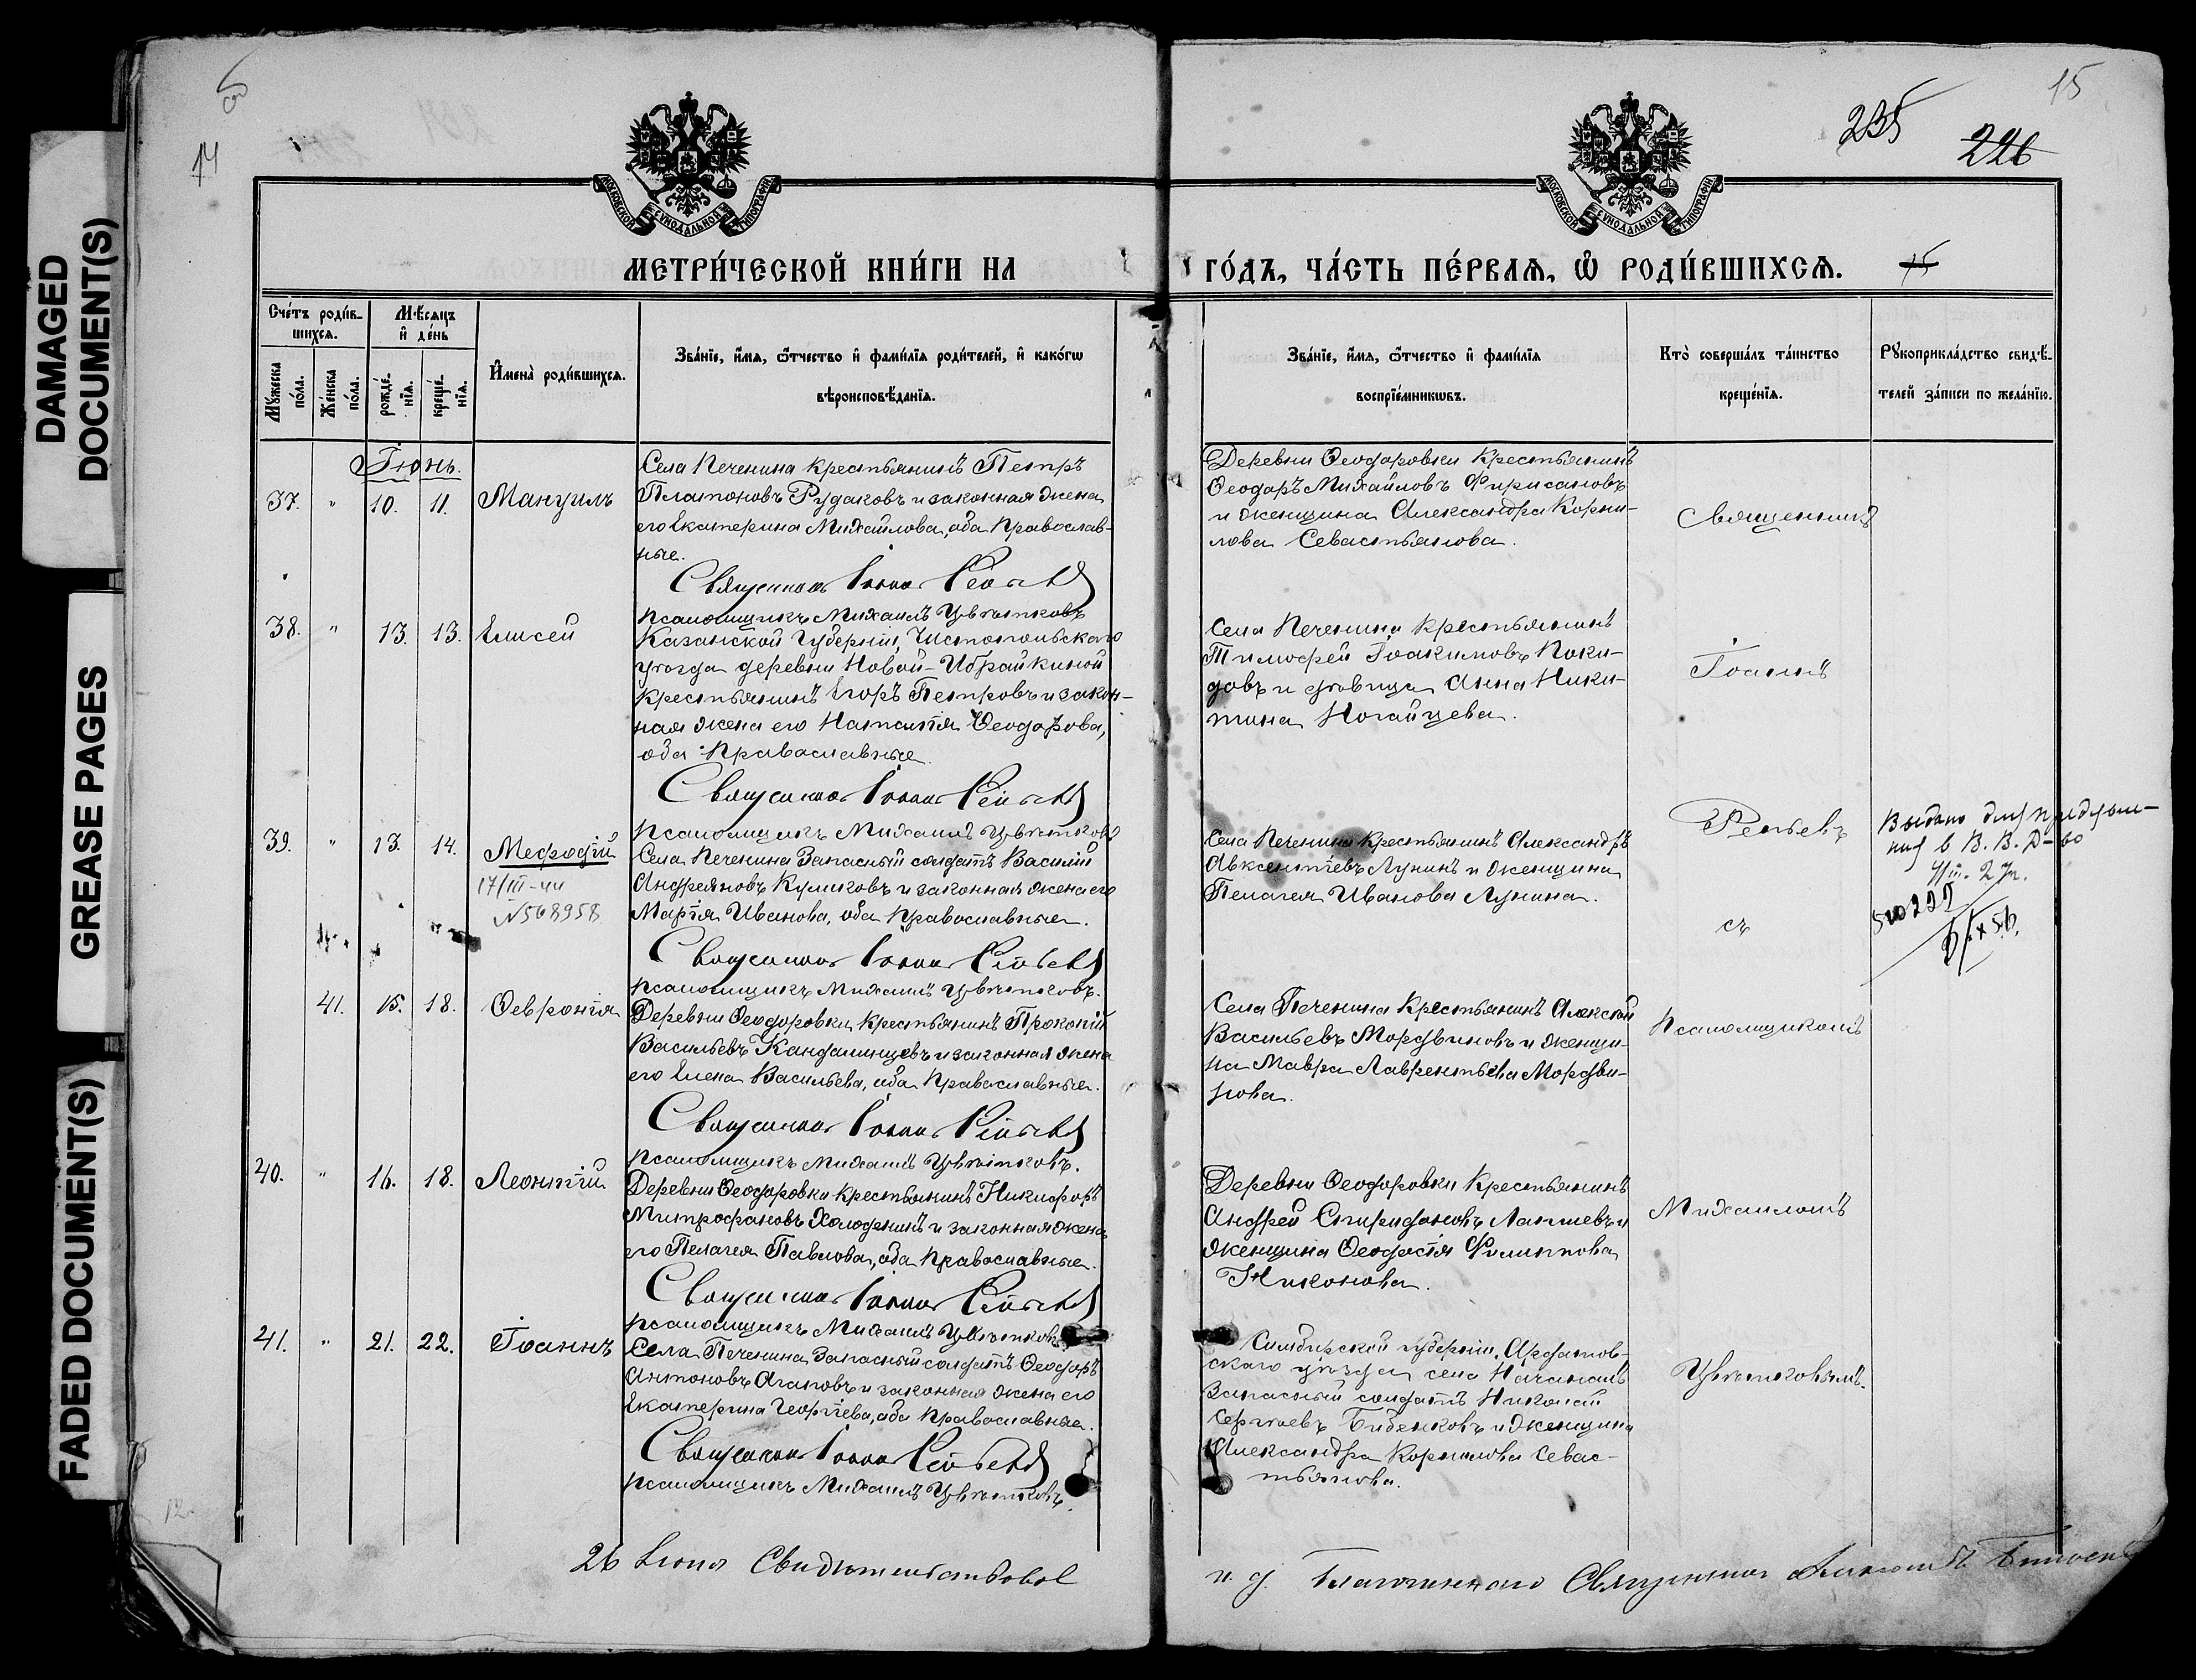 DAMAGED
DOCUMENT(S)
GREASE PAGES
FADED DOCUMENT(S)
14
15
235
226
МОСКОВСКОЙ СУНОДАЛЬНОЙ ТИПОГРАФІИ
МОСКОВСКОЙ СУНОДАЛЬНОЙ ТИПОГРАФІИ
МЕТРИ́ЧЕСКОЙ КНИ́ГИ НА
ГО́ДЪ, ЧА́СТЬ ПЕ́РВАЯ, Ѡ҆ РОДИ́ВШИХСЯ.
15
Сче́тъ роди́в-
шихся.
Мѣ́сяцъ
и҆ де́нь
Мꙋ́жеска
по́ла.
Же́нска
по́ла.
рожде́-
нїя.
креще́-
нїя.
И҆мена̀ роди́вшихся.
Зва́нїе, и҆́мя, ѻ҆́тчество и҆ фами́лїя роди́телей, и҆ како́гѡ
вѣроисповѣ́данїя.
Зва́нїе, и҆́мя, ѻ҆́тчество и҆ фами́лїя
воспрїе́мникѡвъ.
Кто̀ соверша́лъ та́инство
креще́нїя.
Рꙋкоприкла́дство свидѣ́-
телей за́писи по жела́нїю.
Іюнь.
37. " 10. 11. Мануилъ
Села Печенина крестьянинъ Петръ
Платоновъ Рудаковъ и законная жена
его Екатерина Михайлова, оба православ-
ные.
Священникъ Іоаннъ Репьевъ
Псаломщикъ Михаилъ Цвѣтковъ
Деревни Ѳеодоровки крестьянинъ
Ѳеодоръ Михайловъ Фирисановъ
и женщина Александра Корни-
лова Севастьянова.
Священникъ
38. " 13. 13. Елисей
Казанской губерніи, Чистопольскаго
уѣзда деревни Новой-Ибрайкиной
крестьянинъ Егоръ Петровъ и закон-
ная жена его Наталія Ѳеодорова,
оба православные.
Священникъ Іоаннъ Репьевъ
Псаломщикъ Михаилъ Цвѣтковъ
Села Печенина крестьянинъ
Тимоѳей Іоакимовъ Поки-
довъ и дѣвица Анна Ники-
тина Ногайцева.
Іоаннъ
39. " 13. 14. Меѳодій
17/III-44
№568958
Села Печенина Запасный солдатъ Василій
Андреяновъ Куликовъ и законная жена его
Марія Иванова, оба православные.
Священникъ Іоаннъ Репьевъ
Псаломщикъ Михаилъ Цвѣтковъ.
Села Печенина крестьянинъ Александръ
Авксентіевъ Лунинъ и женщина
Пелагея Иванова Лунина.
Репьевъ
съ
Выдано для предъяв-
ния в В. В. Д-во
41. 15. 18. Ѳевронія
Деревни Ѳеодоровки крестьянинъ Прокопій
Васильевъ Кандалинцевъ и законная жена
его Елена Васильева, оба православные.
Священникъ Іоаннъ Репьевъ
Псаломщикъ Михаилъ Цвѣтковъ.
Села Печенина крестьянинъ Алексѣй
Васильевъ Мордвиновъ и женщи-
на Мавра Лаврентьева Мордви-
нова.
Псаломщикомъ
40. " 16. 18. Леонтій
Деревни Ѳеодоровки крестьянинъ Никифоръ
Митрофановъ Холоднинъ и законная жена
его Пелагея Павлова, оба православные.
Священникъ Іоаннъ Репьевъ
Псаломщикъ Михаилъ Цвѣтковъ
Деревни Ѳеодоровки крестьянинъ
Андрей Спиридоновъ Лаптевъ и
женщина Ѳеодосія Филиппова
Никонова.
Михаиломъ
41. " 21. 22. Іоаннъ
Села Печенина Запасный солдатъ Ѳеодоръ
Антоновъ Агаповъ и законная жена его
Екатерина Георгіева, оба православные.
Священникъ Іоаннъ Репьевъ
Псаломщикъ Михаилъ Цвѣтковъ.
Симбирской губерніи, Ардатов-
скаго уѣзда села
Запасный солдатъ Николай
Сергѣевъ и женщина
Александра Корнилова Севас-
тьянова.
Цвѣтковымъ.
26 Іюня Свидѣтельствовалъ
и. д. Благочиннаго Священникъ